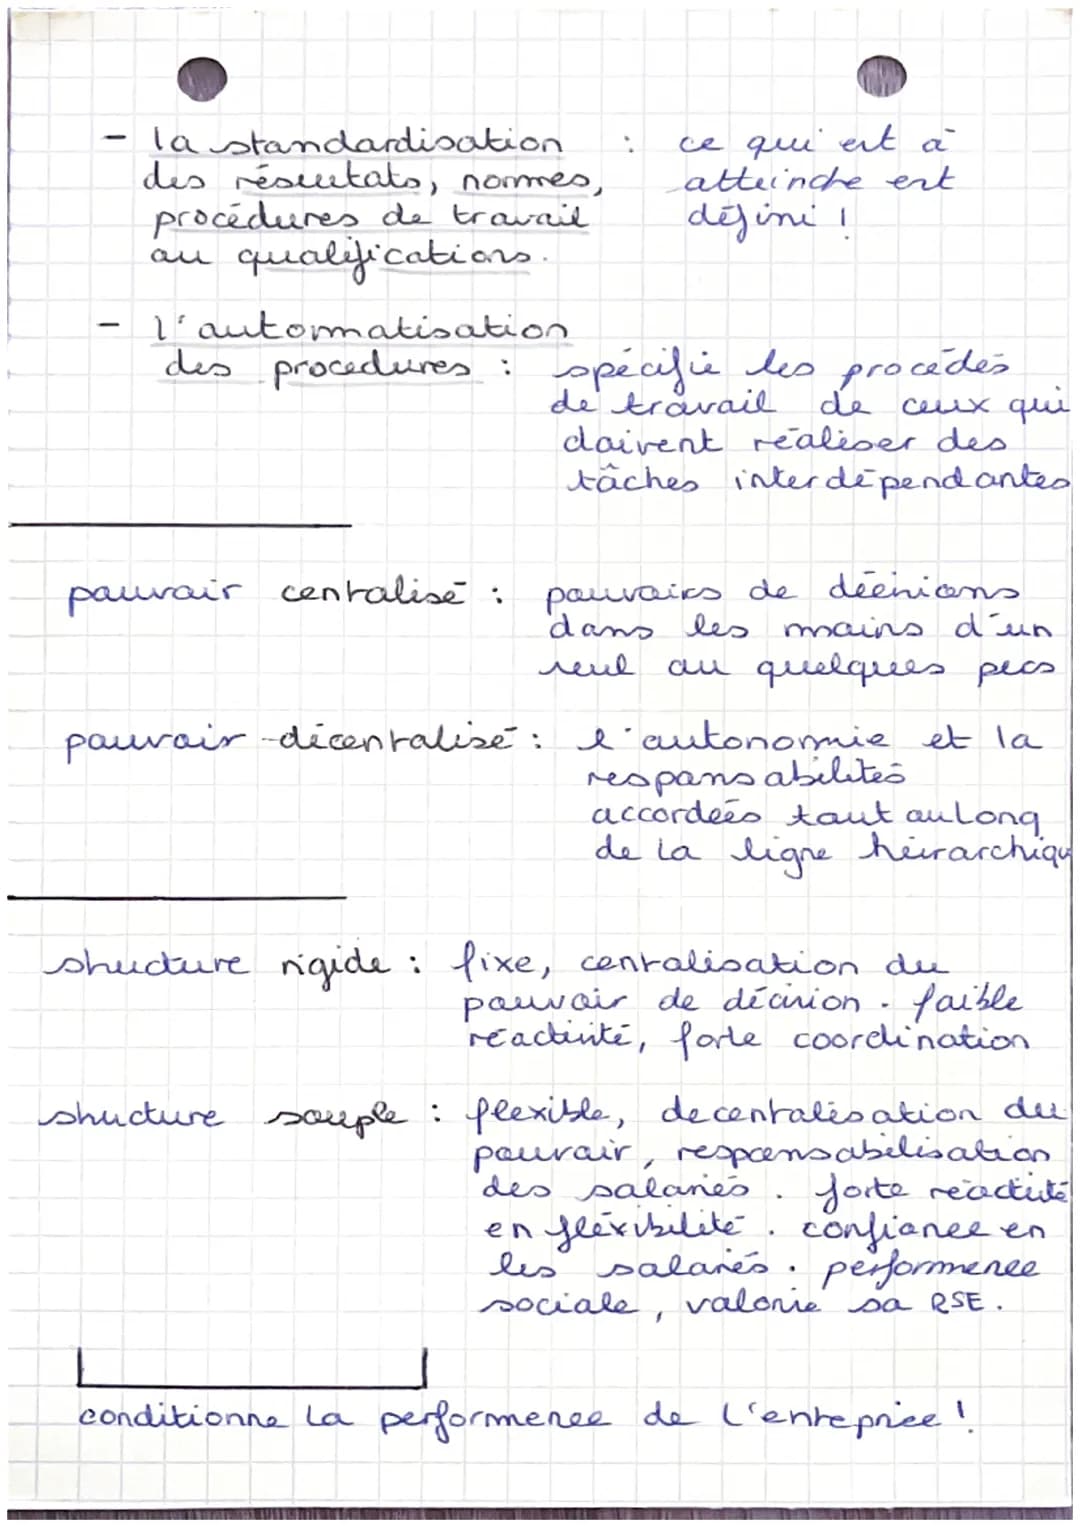 - la standardisation : ce qui est à
des résultats, normes, atteindre est
procédures de travail défini !
ou qualifications.
- l'automatisation
des procedures : spécifie les procédés
de travail de ceux qui
doivent réaliser des
tâches interdépendantes
pouvoir centralisé : pouvoirs de décisions
dans les mains d'un
seul ou quelques pers
pouvoir décentralisé : l'autonomie et la
responsabilités
accordées tout au long
de la ligne heirarchiqu
structure rigide : fixe, centralisation du
pouvoir de décision. faible
réactivité, forte coordination
structure souple : flexible, decentralisation du
pouvoir, responsabilisation
des salariés. forte réactivité
en fléxibilité. confiance en
les salariés. performence
sociale, valorise sa RSE.
conditionne la performence de l'entreprise !